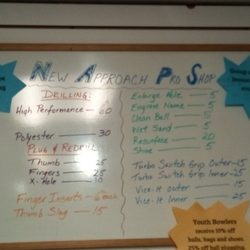 New Approach Pro Shop
Drilling:
High Performance — 60
Polyester — 30
Plug & Redrill
Thumb — 25
Fingers — 25
X-Hole — 10
Finger Inserts — 6 each
Thumb Slug — 15
Enlarge Hole — 5
Engrave Name — 5
Clean Ball — 5
Wet Sand — 5
Resurface — 20
Shine — 5
Turbo Switch Grip Outer — 15
Turbo Switch Grip Inner — 25
Vise-It outer — 15
Vise-It inner — 25
Youth Bowlers
receive 10% off
balls, bags and shoes
25% off ball